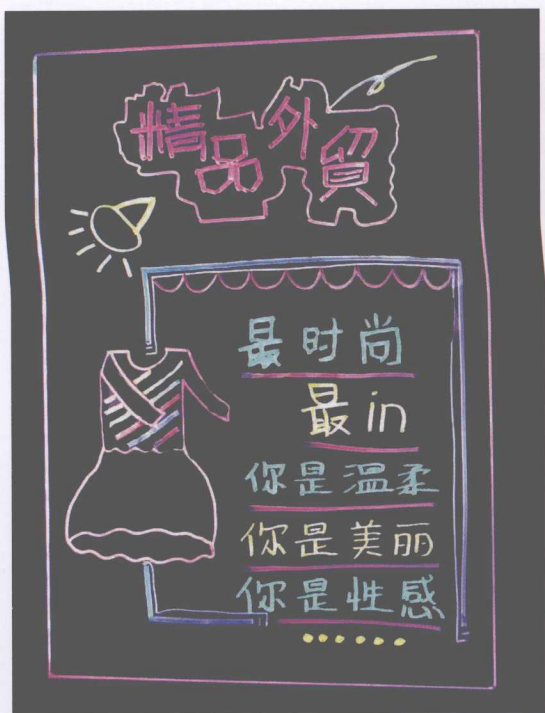 精品外貿
最时尚
最in
你是温柔
你是美丽
你是性感
••••••